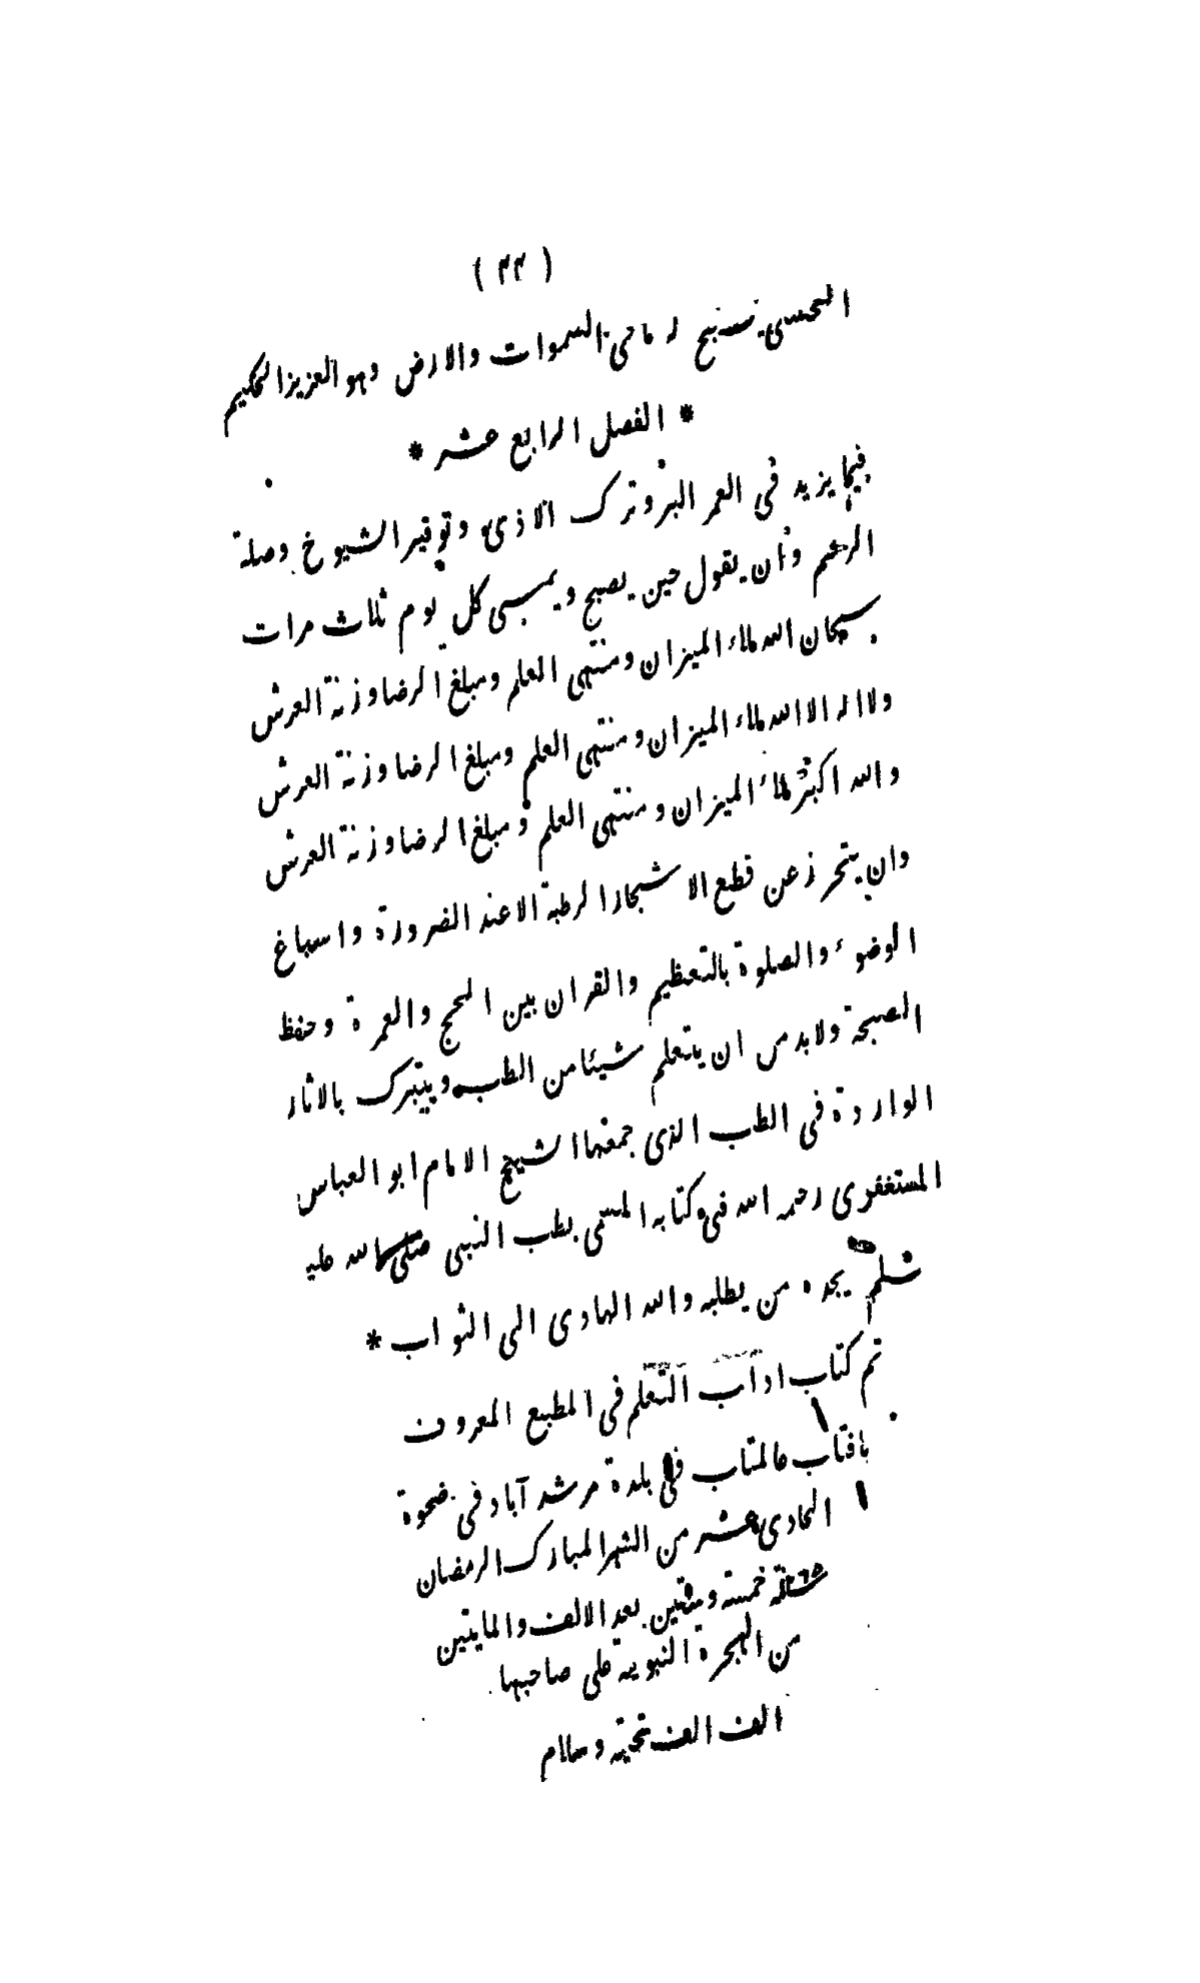 ( ٣٣ )
الحسنى يسبح له ما فى السموات والارض وهو العزيز الحكيم
* الفصل الرابع عشر *
فيما يزيد فى العمر البر وترك الاذى وتوقير الشيوخ وصلة
الرحم وان يقول حين يصبح ويمسى كل يوم ثلث مرات
سبحان الله ملاء الميزان ومنتهى العلم ومبلغ الرضا وزنة العرش
ولا اله الا الله ملاء الميزان ومنتهى العلم ومبلغ الرضا وزنة العرش
والله اكبر ملاء الميزان ومنتهى العلم ومبلغ الرضا وزنة العرش
وان يتحرز عن قطع الاشجار الرطبة الا عند الضرورة واسباغ
الوضوء والصلوة بالتعظيم والقران بين الحج والعمرة وحفظ
الصحة ولابد من ان يتعلم شيئا من الطب ويتبرك بالاثار
الواردة فى الطب الذى جمعها الشيخ الامام ابو العباس
المستغفرى رحمه الله فى كتابه المسمى بطب النبى صلى الله عليه
وسلم يجده من يطلبه والله الهادى الى الثواب *
تم كتاب اداب التعلم فى المطبع المعروف
بافتاب عالمتاب فى بلدة مرشد آباد فى ضحوة
الحادى عشر من الشهر المبارك الرمضان
سنة ١٢٦٥ خمسة وستين بعد الالف والمايتين
من الهجرة النبوية على صاحبها
الف الف تحية وسلام